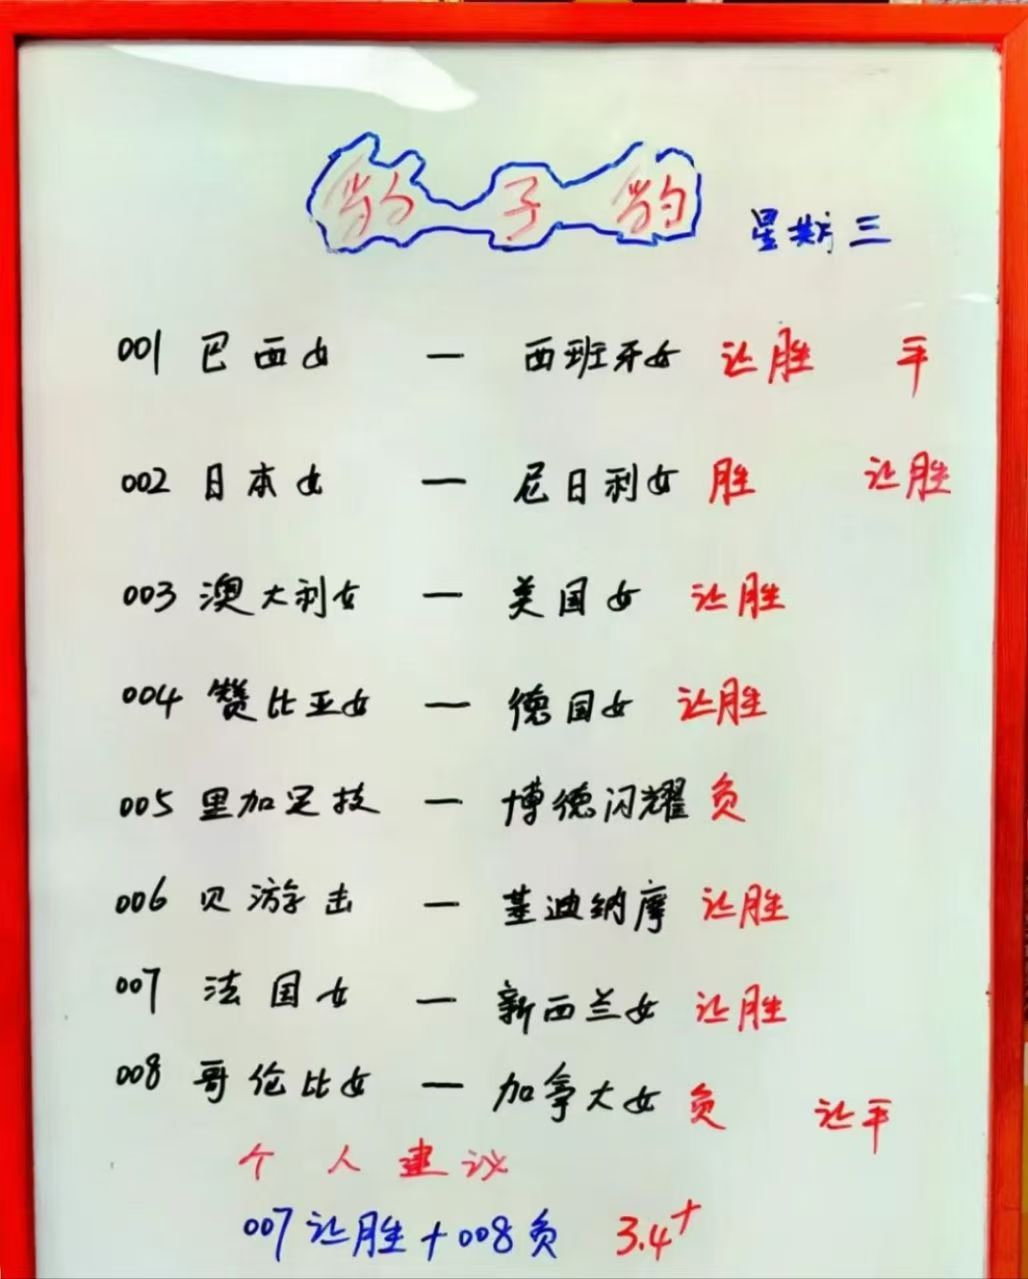 豹子豹
星期三
001 巴西女 — 西班牙女 让胜 平
002 日本女 — 尼日利女 胜 让胜
003 澳大利女 — 美国女 让胜
004 赞比亚女 — 德国女 让胜
005 里加足技 — 博德闪耀 负
006 贝游击 — 基迪纳摩 让胜
007 法国女 — 新西兰女 让胜
008 哥伦比女 — 加拿大女 负 让平
个人建议
007让胜+008负 3.4+